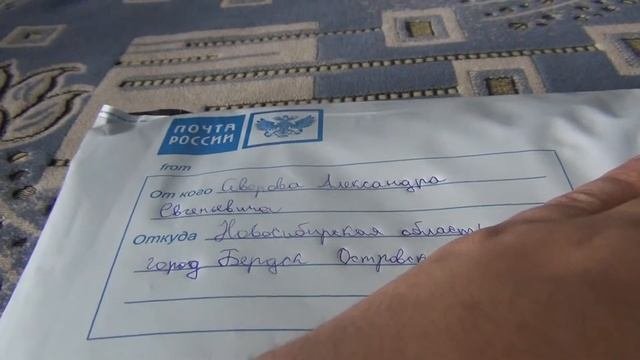 ПОЧТА
РОССИИ
from
От кого Аверова Александра
Евгеньевича
Откуда Новосибирская область
город Бердск Островск